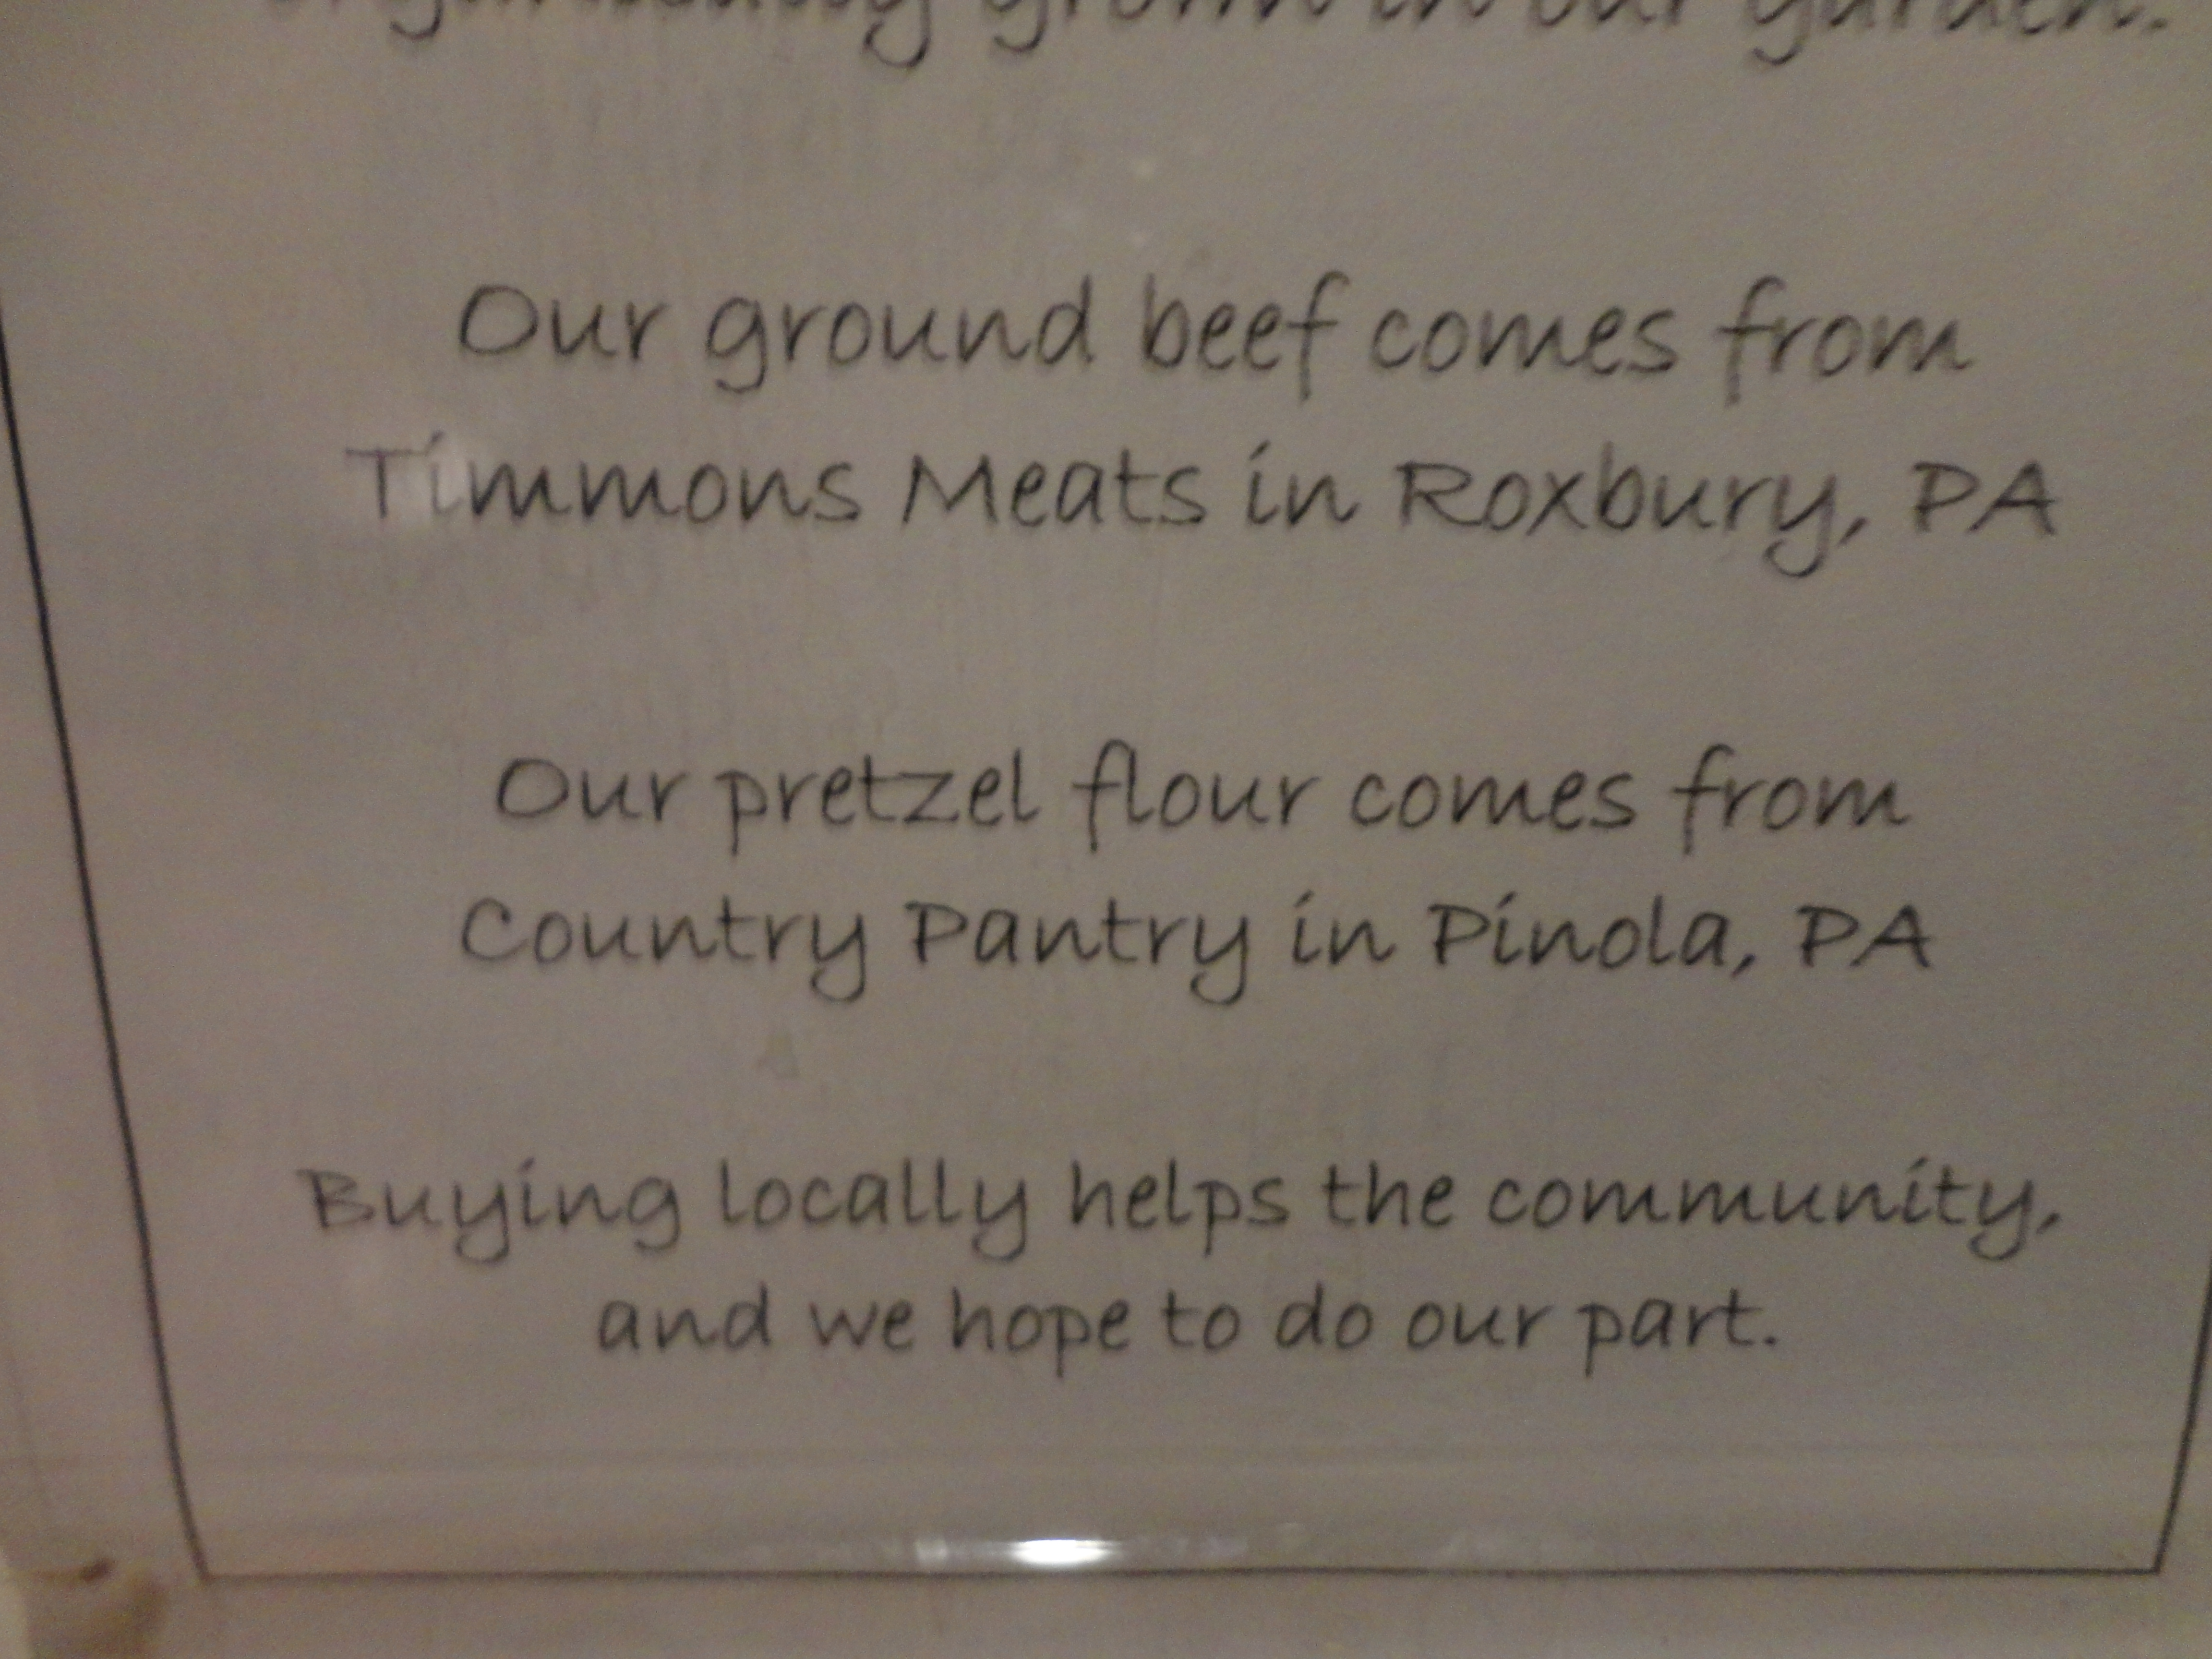 organically grown in our garden.
Our ground beef comes from
Timmons Meats in Roxbury, PA
Our pretzel flour comes from
Country Pantry in Pinola, PA
Buying locally helps the community,
and we hope to do our part.